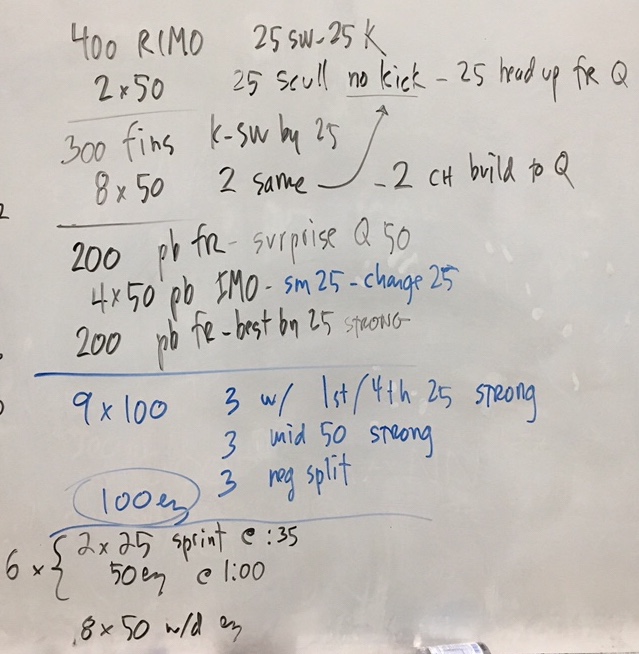 400 RIMO 25 sw-25 K
2x50 25 scull no kick - 25 head up fr Q
300 fins k-sw by 25
8x50 2 same - 2 CH build to Q
200 pb fr - surprise Q 50
4x50 pb IMO - sm 25 - change 25
200 pb fr - best by 25 STRONG
9x100 3 w/ 1st/4th 25 strong
3 mid 50 strong
100 ez 3 neg split
6x{ 2x25 sprint @ :35
50 ez @ 1:00
8x50 w/d ez